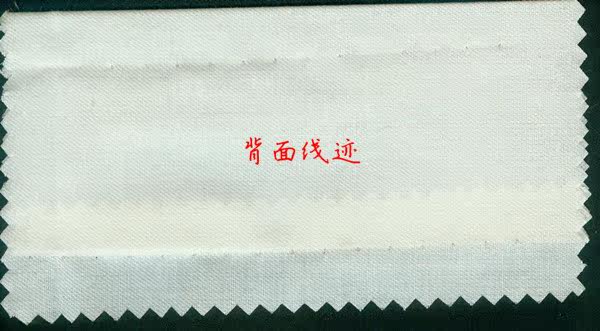 背面线迹